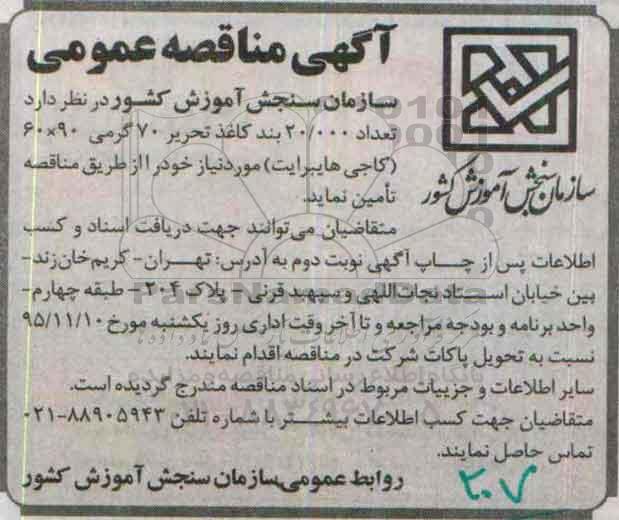 آگهی مناقصه عمومی
سازمان سنجش آموزش کشور
سازمان سنجش آموزش کشور در نظر دارد
تعداد ۲۰/۰۰۰ بند کاغذ تحریر ۷۰ گرمی ۹۰×۶۰
(کاجی هایبرایت) موردنیاز خود را از طریق مناقصه
تأمین نماید.
متقاضیان می‌توانند جهت دریافت اسناد و کسب
اطلاعات پس از چاپ آگهی نوبت دوم به آدرس: تهران- کریم‌خان‌زند-
بین خیابان استاد نجات‌اللهی و سپهبد قرنی - پلاک ۲۰۴- طبقه چهارم-
واحد برنامه و بودجه مراجعه و تا آخر وقت اداری روز یکشنبه مورخ ۹۵/۱۱/۱۰
نسبت به تحویل پاکات شرکت در مناقصه اقدام نمایند.
سایر اطلاعات و جزییات مربوط در اسناد مناقصه مندرج گردیده است.
متقاضیان جهت کسب اطلاعات بیشتر با شماره تلفن ۸۸۹۰۵۹۴۳-۰۲۱
تماس حاصل نمایند.
روابط عمومی سازمان سنجش آموزش کشور
۲۰۷